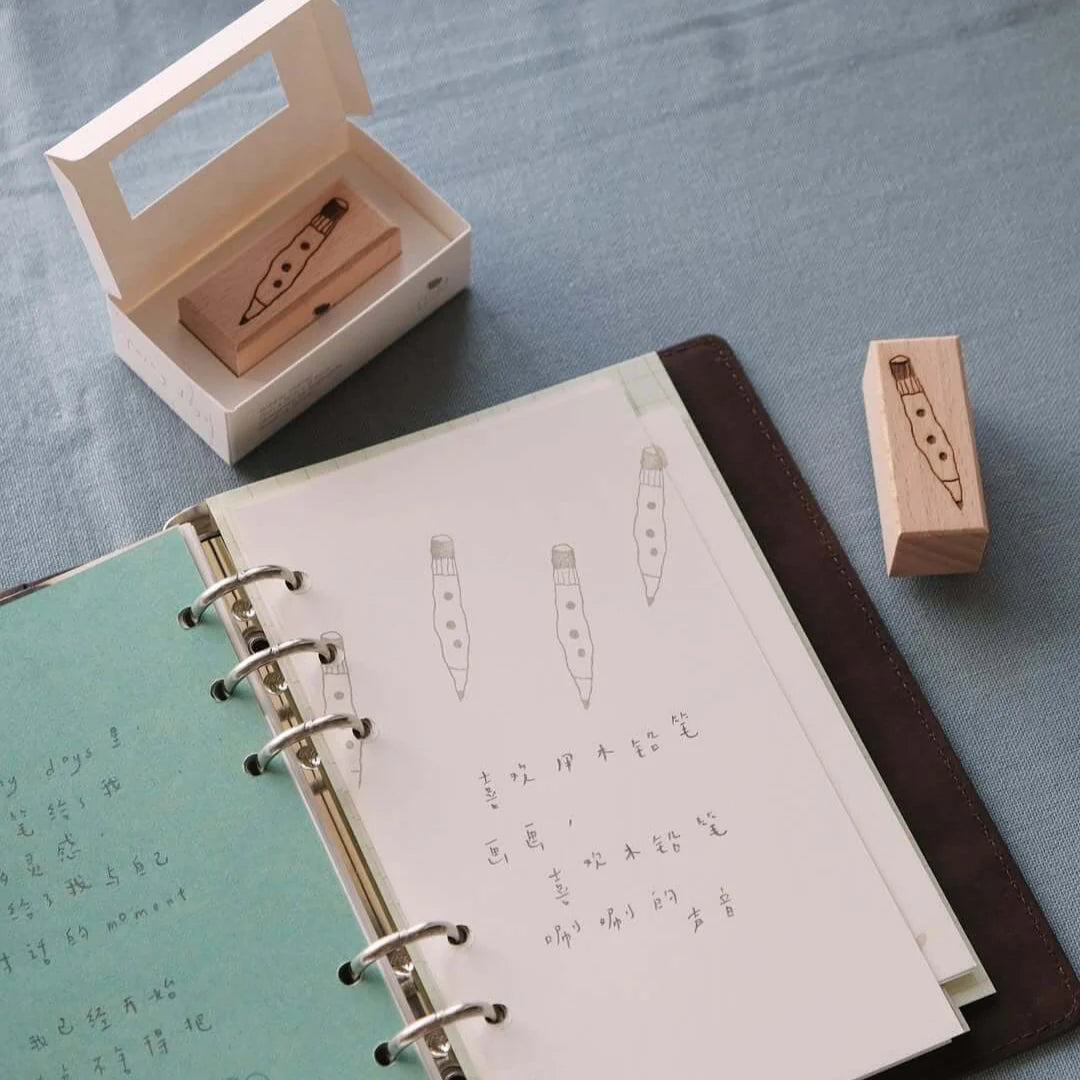 my days 里
笔给了我
灵感.
给了我与自己
话的 moment
我已经开始
不舍得把
喜欢用木铅笔
画画，
喜欢木铅笔
唰唰的声音